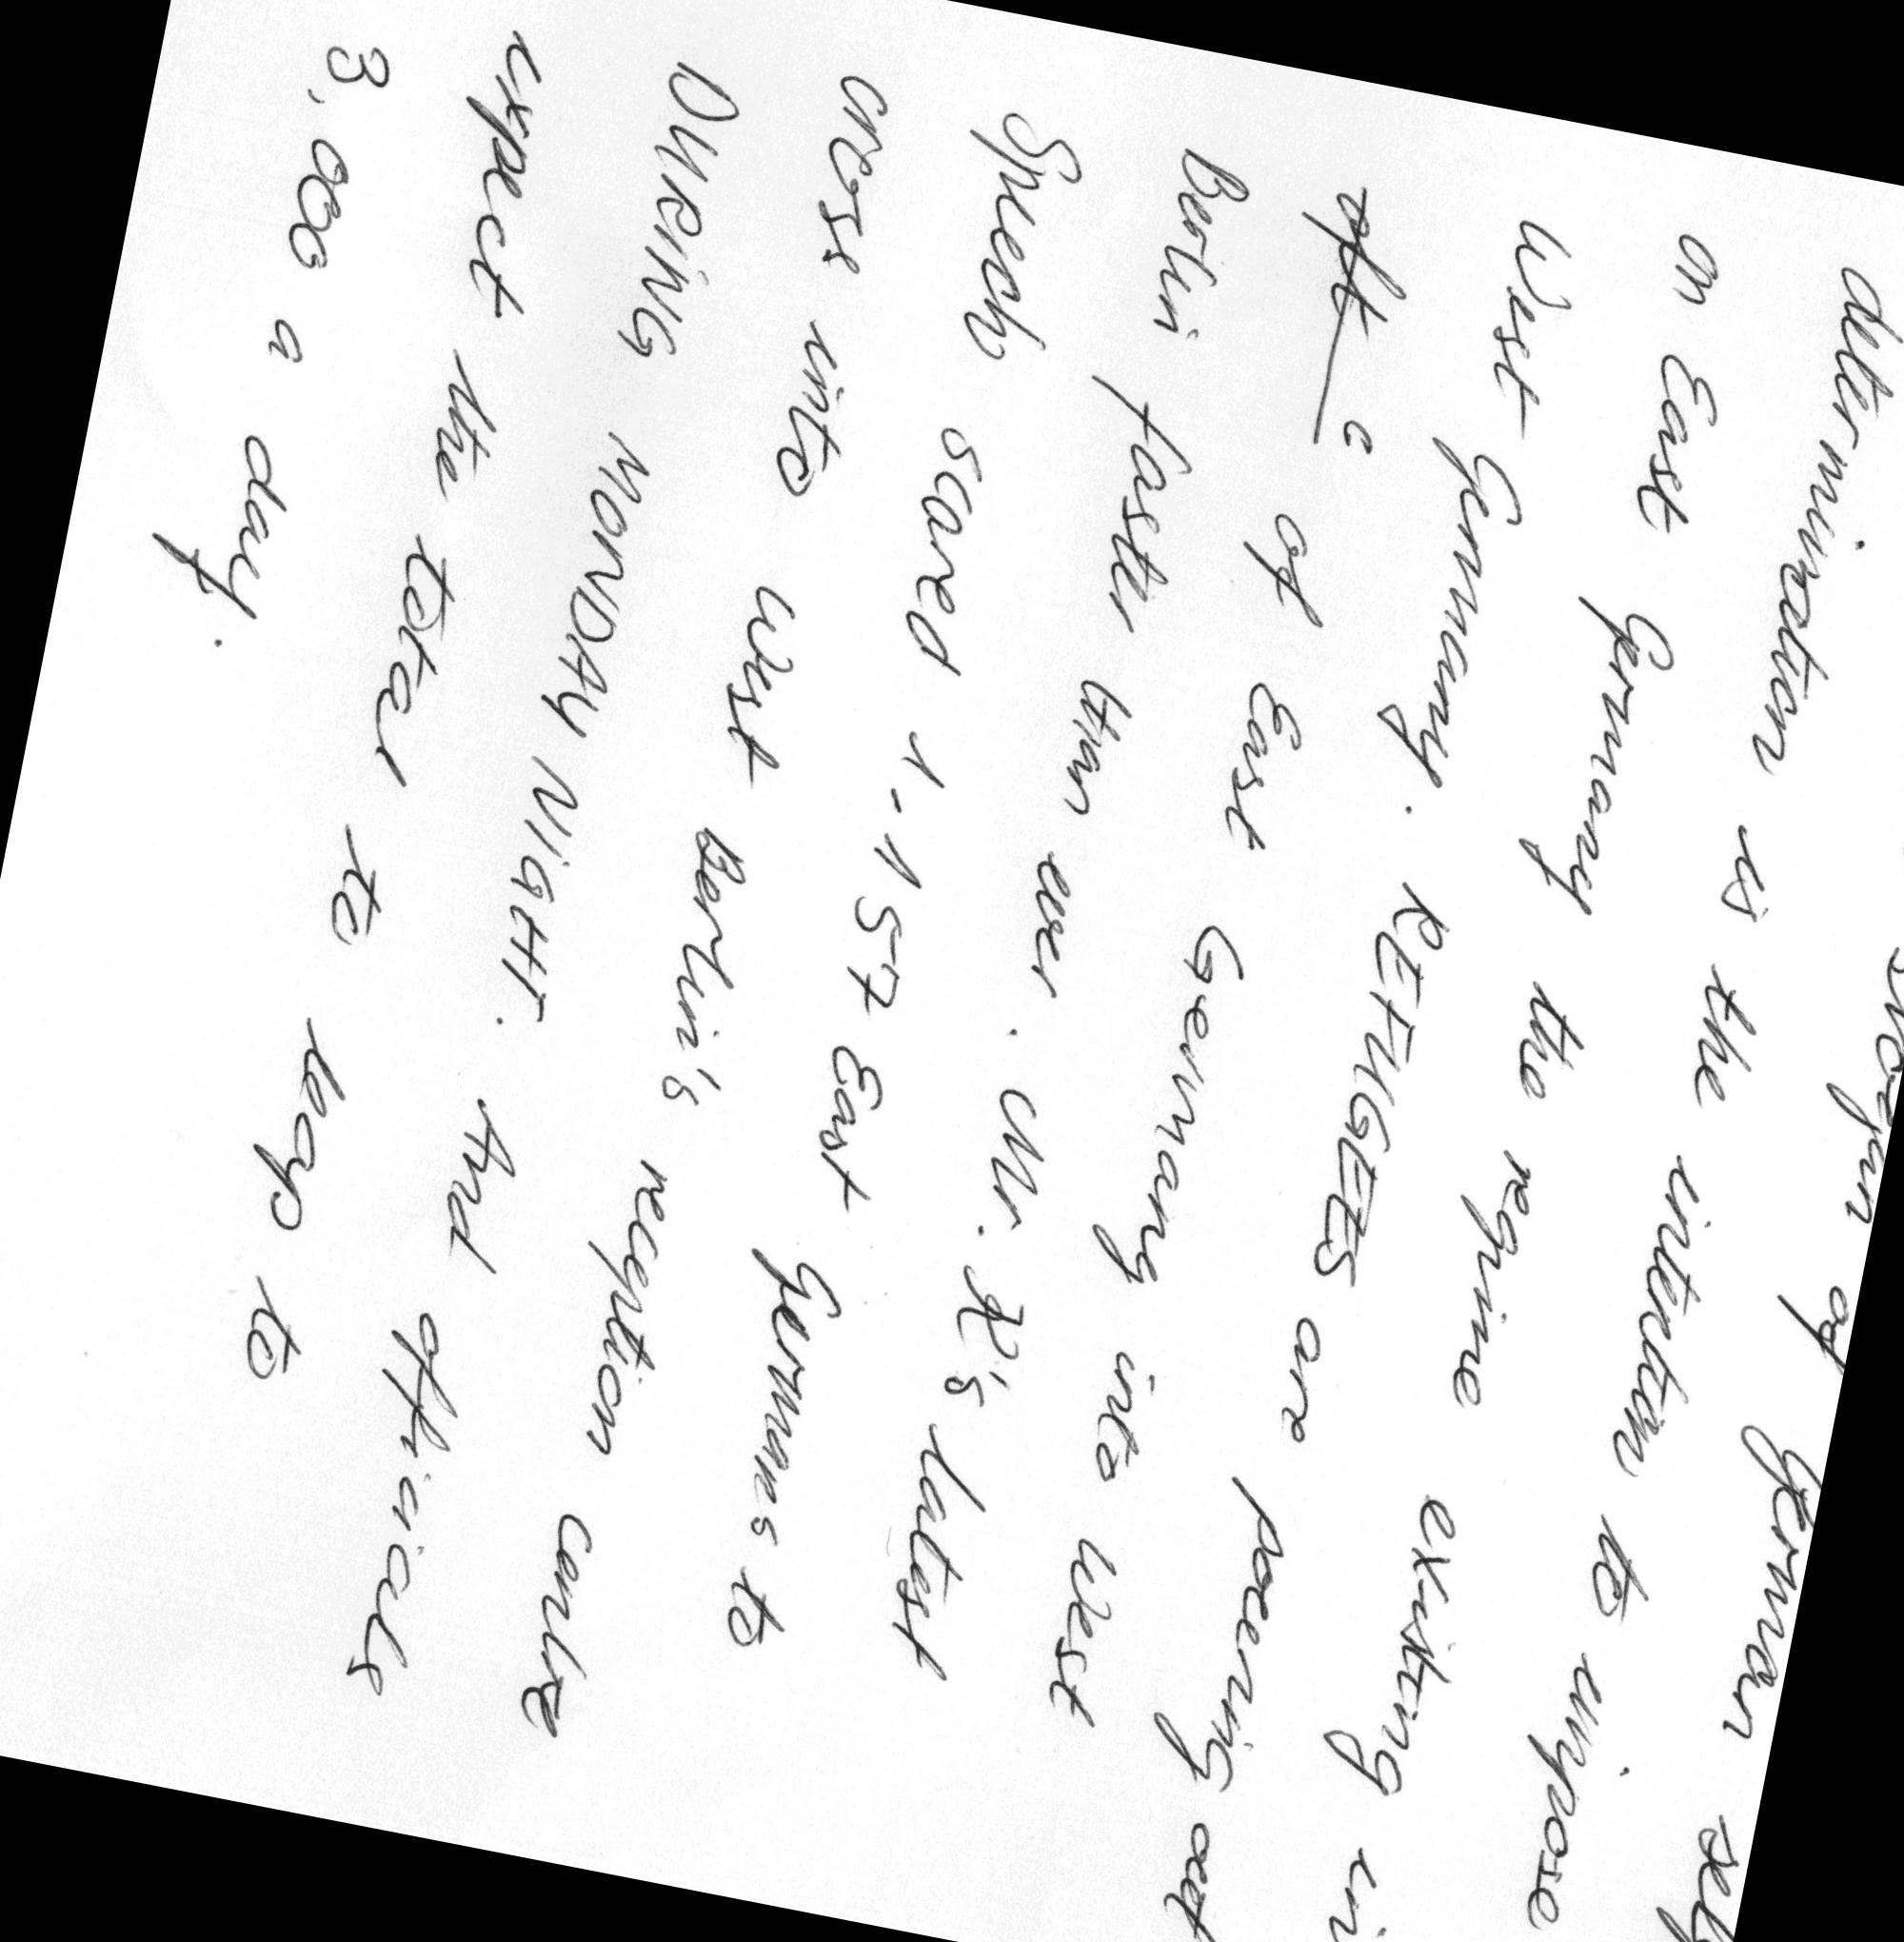 slogan of German self
determination is the intention to impose
on East Germany the regime existing in
West Germany. REFUGEES are poering oet
of East Germany into West
Berlin faster than ever. Mr. K's latest
Speech scared 1.157 East Germans to
cross into West Berlin's reception centre
DURING MONDAY NIGHT. And officials
expect the total to leap to
3,000 a day.